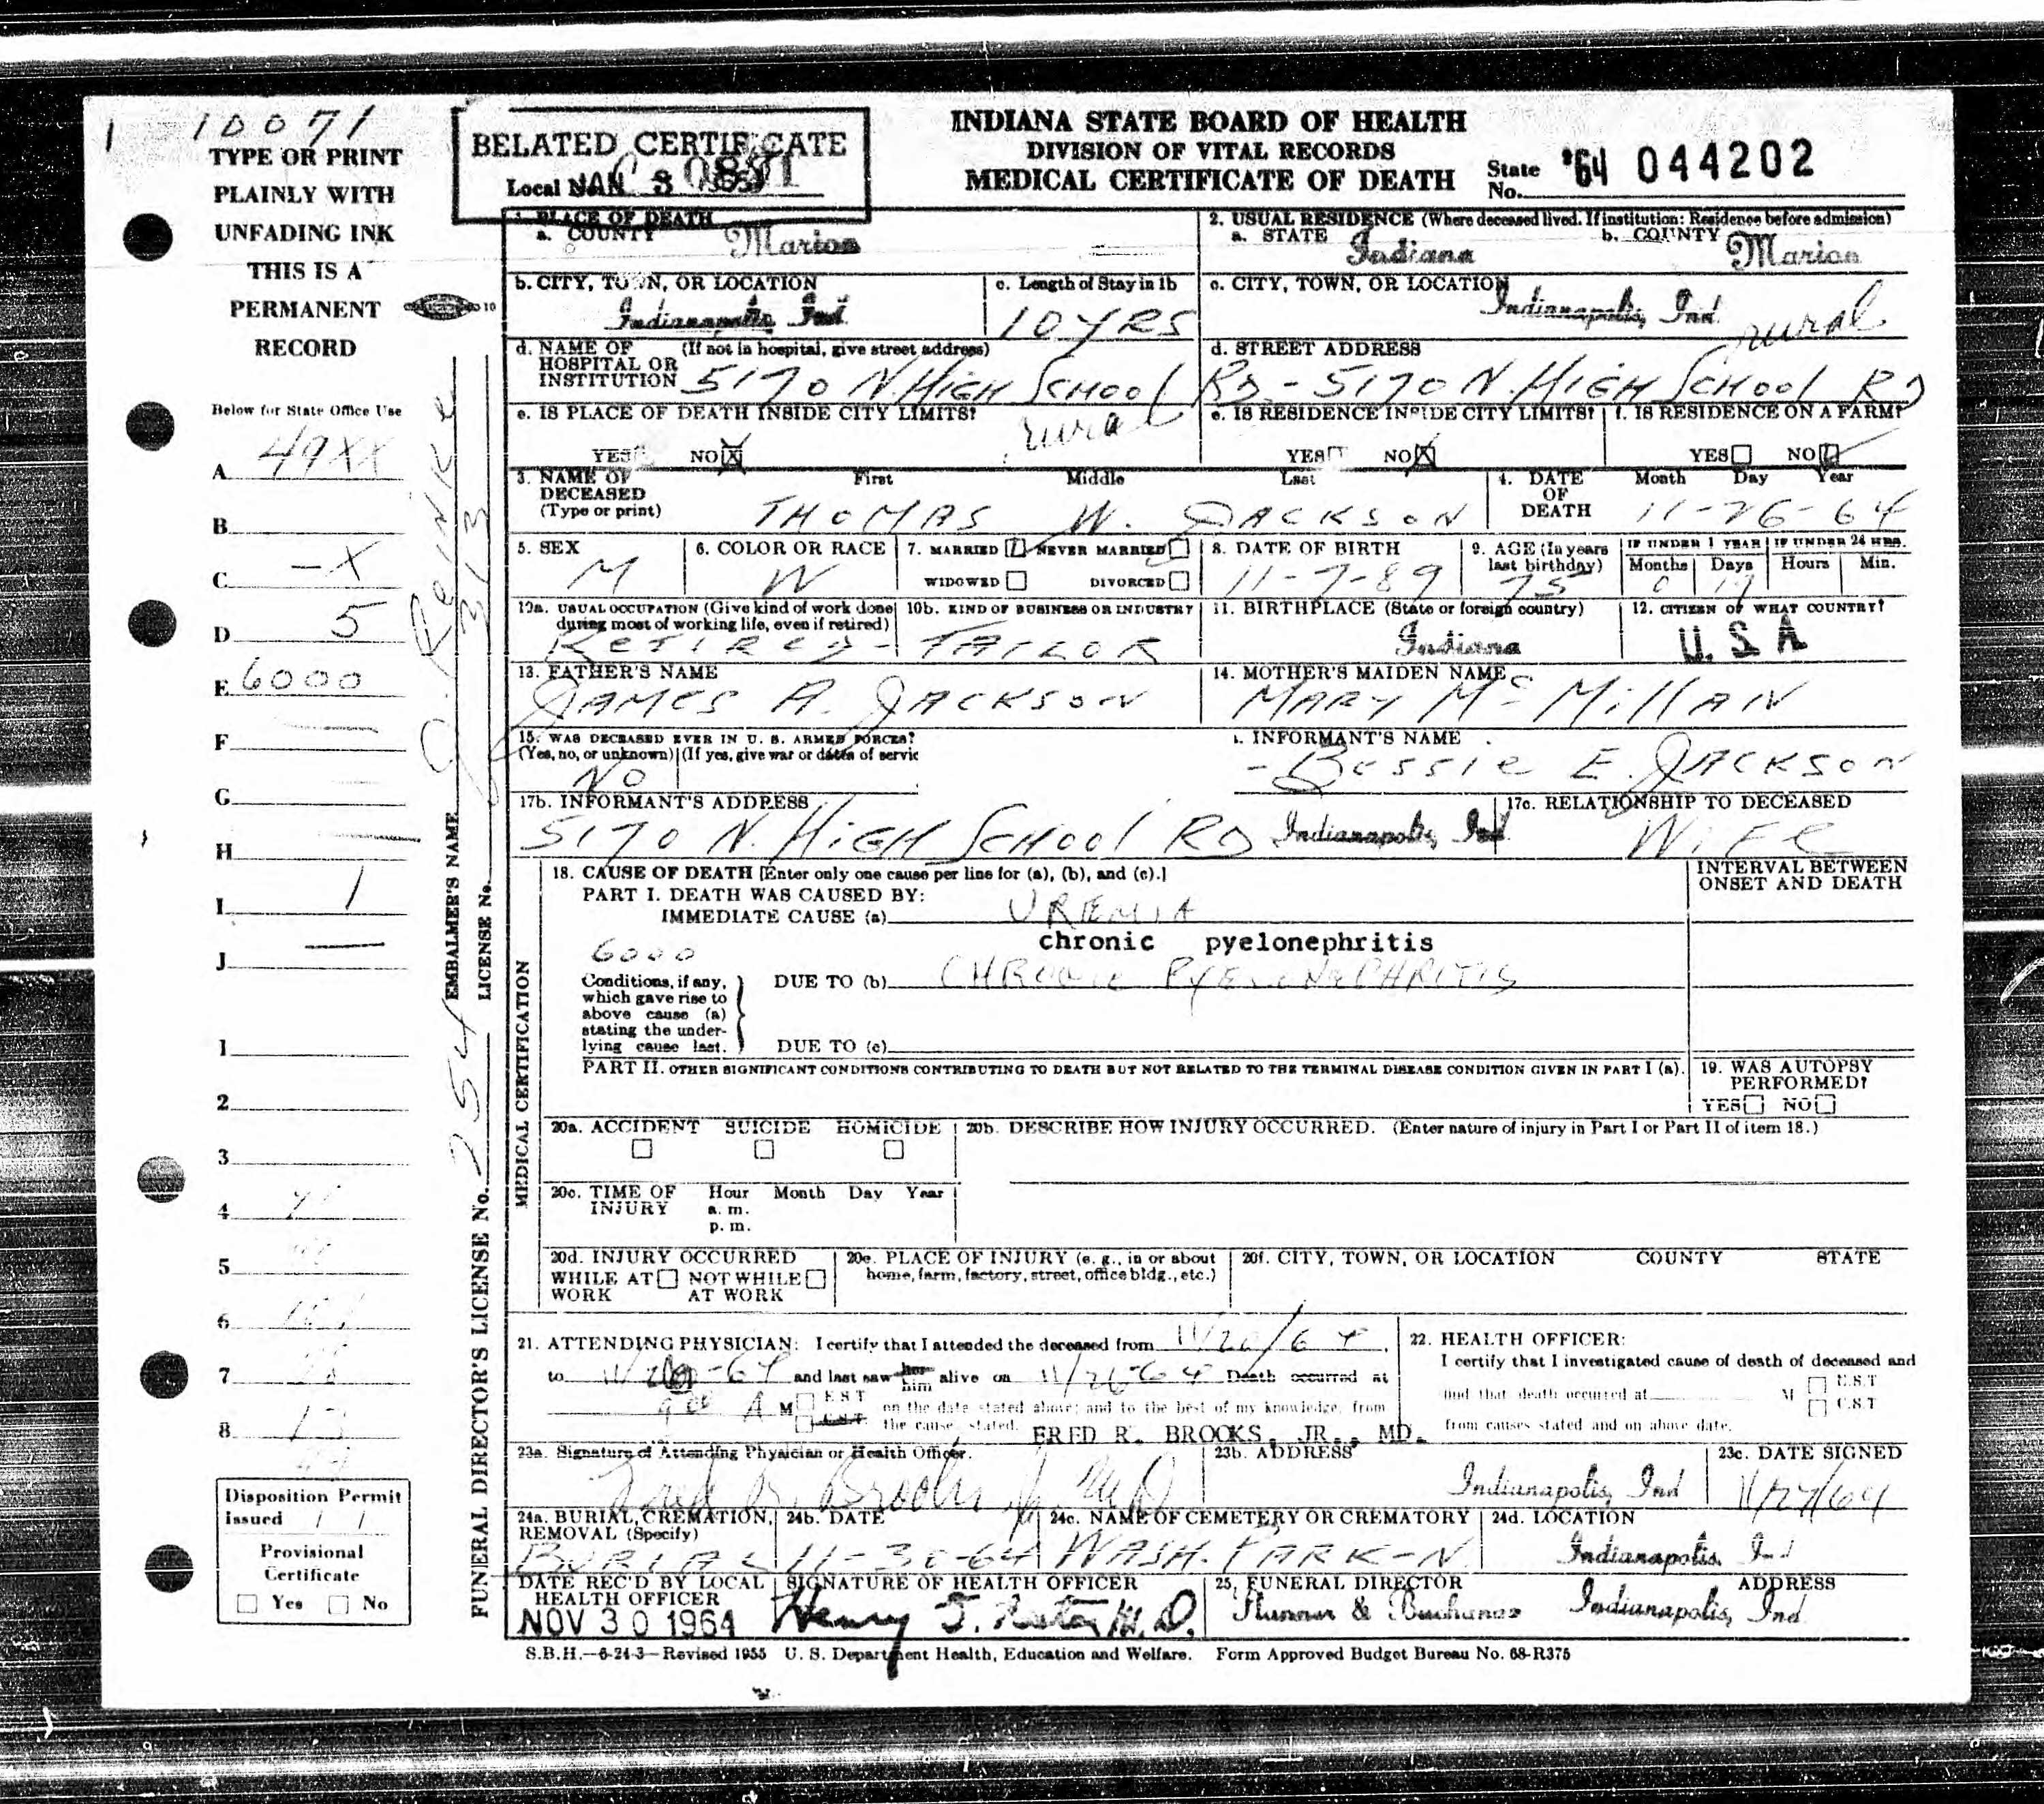 1 10071
TYPE OR PRINT
PLAINLY WITH
UNFADING INK
THIS IS A
PERMANENT
RECORD
Below for State Office Use
A 49XX
B
C -X
D 5
E 6000
F
G
H
I 1
J
1
2
3
4
5
6
7
8 13
Disposition Permit
Issued / /
Provisional
Certificate
Yes No
EMBALMER'S NAME J. REINKE
LICENSE No. 313
FUNERAL DIRECTOR'S LICENSE No. 254
BELATED CERTIFICATE
Local No.
INDIANA STATE BOARD OF HEALTH
DIVISION OF VITAL RECORDS
MEDICAL CERTIFICATE OF DEATH
State No. '64 044202
1. PLACE OF DEATH
a. COUNTY Marion
2. USUAL RESIDENCE (Where deceased lived. If institution: Residence before admission)
a. STATE Indiana b. COUNTY Marion
b. CITY, TOWN, OR LOCATION Indianapolis, Ind.
c. Length of Stay in 1b 10 YRS
c. CITY, TOWN, OR LOCATION Indianapolis, Ind. rural
d. NAME OF HOSPITAL OR INSTITUTION (If not in hospital, give street address) 5170 N. HIGH SCHOOL RD -
d. STREET ADDRESS 5170 N. HIGH SCHOOL RD
e. IS PLACE OF DEATH INSIDE CITY LIMITS? rural
YES NO X
e. IS RESIDENCE INSIDE CITY LIMITS?
YES NO X
f. IS RESIDENCE ON A FARM?
YES NO
3. NAME OF DECEASED (Type or print) First Middle Last
THOMAS W. JACKSON
4. DATE OF DEATH Month Day Year
11-26-64
5. SEX M
6. COLOR OR RACE W
7. MARRIED NEVER MARRIED
WIDOWED DIVORCED
8. DATE OF BIRTH 11-7-89
9. AGE (In years last birthday) 75
IF UNDER 1 YEAR IF UNDER 24 HRS.
Months Days Hours Min.
0 19
10a. USUAL OCCUPATION (Give kind of work done during most of working life, even if retired) RETIRED -
10b. KIND OF BUSINESS OR INDUSTRY TAILOR
11. BIRTHPLACE (State or foreign country) Indiana
12. CITIZEN OF WHAT COUNTRY? U. S A
13. FATHER'S NAME JAMES A. JACKSON
14. MOTHER'S MAIDEN NAME MARY McMillAN
15. WAS DECEASED EVER IN U. S. ARMED FORCES?
(Yes, no, or unknown) (If yes, give war or dates of servic
NO
. INFORMANT'S NAME
- Bessie E. JACKSON
17b. INFORMANT'S ADDRESS 5170 N. HIGH SCHOOL RD Indianapolis, Ind.
17c. RELATIONSHIP TO DECEASED WIFE
MEDICAL CERTIFICATION
18. CAUSE OF DEATH [Enter only one cause per line for (a), (b), and (c).]
INTERVAL BETWEEN ONSET AND DEATH
PART I. DEATH WAS CAUSED BY:
IMMEDIATE CAUSE (a) UREMIA
6000 chronic pyelonephritis
Conditions, if any, which gave rise to above cause (a) stating the underlying cause last.
DUE TO (b) CHRONIC PYELONEPHRITIS
DUE TO (c)
PART II. OTHER SIGNIFICANT CONDITIONS CONTRIBUTING TO DEATH BUT NOT RELATED TO THE TERMINAL DISEASE CONDITION GIVEN IN PART I (a).
19. WAS AUTOPSY PERFORMED?
YES NO
20a. ACCIDENT SUICIDE HOMICIDE
20b. DESCRIBE HOW INJURY OCCURRED. (Enter nature of injury in Part I or Part II of item 18.)
20c. TIME OF INJURY Hour Month Day Year
a. m.
p. m.
20d. INJURY OCCURRED
WHILE AT WORK NOT WHILE AT WORK
20e. PLACE OF INJURY (e. g., in or about home, farm, factory, street, office bldg., etc.)
20f. CITY, TOWN, OR LOCATION COUNTY STATE
21. ATTENDING PHYSICIAN: I certify that I attended the deceased from 11/20/64,
to 11/26-64 and last saw her him alive on 11/26-64 Death occurred at
9:00 A M E.S.T C.S.T. on the date stated above; and to the best of my knowledge, from the cause stated. FRED R. BROOKS, JR., MD.
22. HEALTH OFFICER:
I certify that I investigated cause of death of deceased and
find that death occurred at M E.S.T C.S.T
from causes stated and on above date.
23a. Signature of Attending Physician or Health Officer.
Fred R. Brooks Jr. MD
23b. ADDRESS Indianapolis, Ind
23c. DATE SIGNED 11/27/64
24a. BURIAL, CREMATION, REMOVAL (Specify) BURIAL
24b. DATE 11-30-64
24c. NAME OF CEMETERY OR CREMATORY WASH. PARK-N.
24d. LOCATION Indianapolis, Ind
DATE REC'D BY LOCAL HEALTH OFFICER NOV 30 1964
SIGNATURE OF HEALTH OFFICER Henry G. Nester M.D.
25. FUNERAL DIRECTOR ADDRESS
Flanner & Buchanan Indianapolis, Ind.
S.B.H.—6-24-3—Revised 1955 U. S. Department Health, Education and Welfare. Form Approved Budget Bureau No. 68-R375